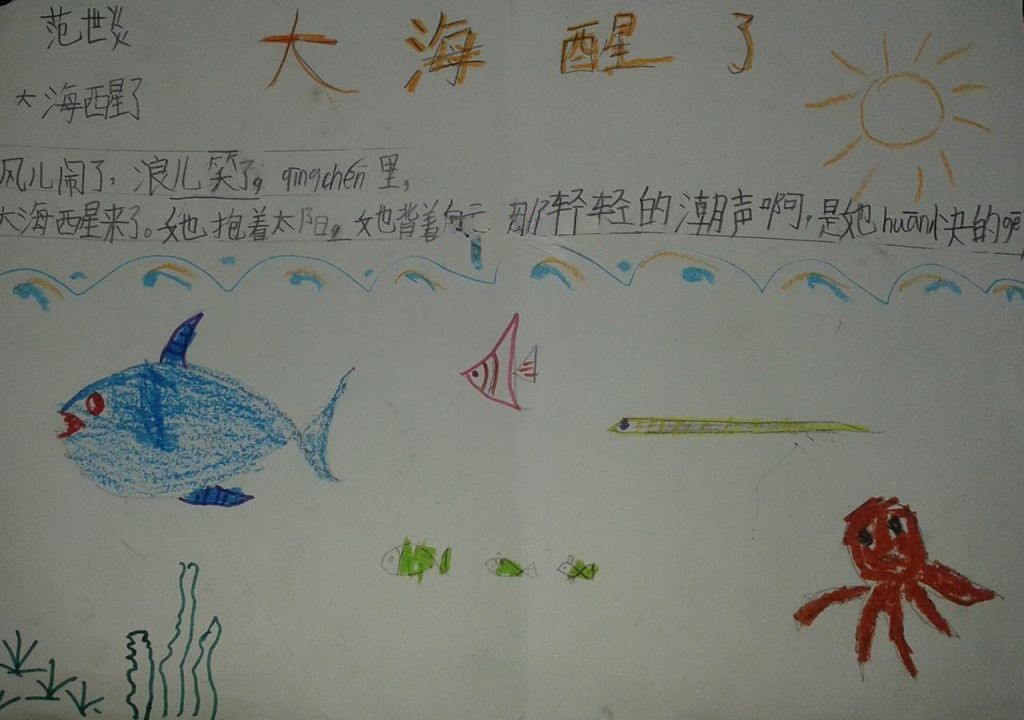 范世炎
大海醒了
大海醒了
风儿闹了，浪儿笑了。qīngchén里，
大海醒来了。她抱着太阳。她背着
那轻轻的潮声啊，是她huān快的